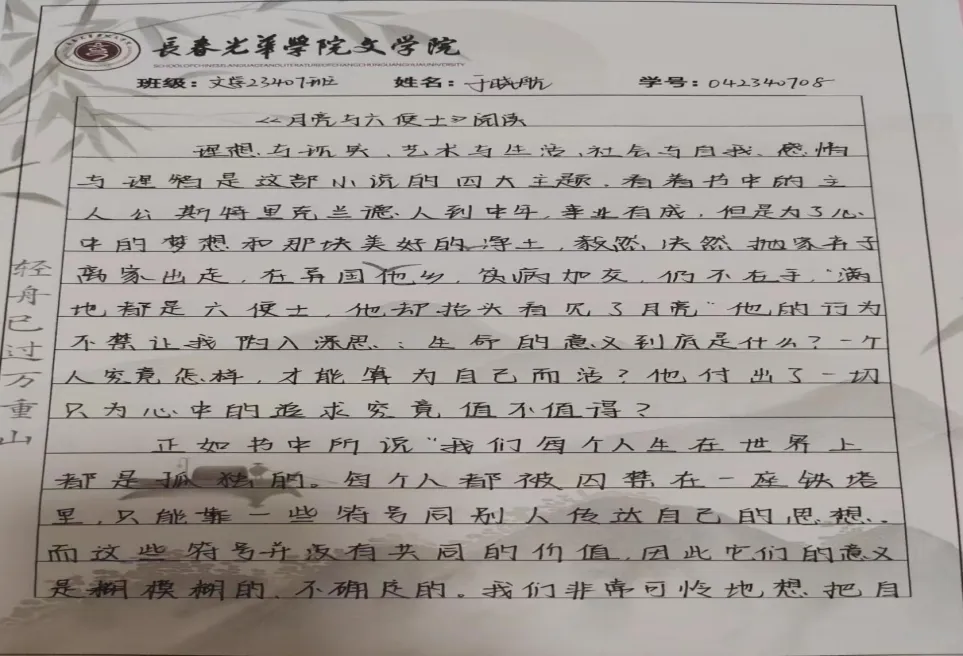 長春光華學院文学院
SCHOOLOFCHINESELANGUAGEANDLITERATUREOFCHANGCHUNGUANGHUAUNIVERSITY
班级：文学23407班 姓名：于晓航 学号：042340708
《月亮与六便士》阅读
理想与现实、艺术与生活、社会与自我、感情
与理智是这部小说的四大主题。看着书中的主
人公斯特里克兰德人到中年，事业有成，但是为了心
中的梦想和那块美好的净土，毅然决然抛家弃子
离家出走，在异国他乡，贫病加交，仍不右手，“满
地都是六便士，他却抬头看见了月亮”他的行为
不禁让我陷入深思：生命的意义到底是什么？一个
人究竟怎样，才能算为自己而活？他付出了一切
只为心中的追求究竟值不值得？
正如书中所说“我们每个人生在世界上
都是孤独的。每个人都被囚禁在一座铁塔
里，只能靠一些符号同别人传达自己的思想。
而这些符号并没有共同的价值，因此它们的意义
是模糊的、不确定的。我们非常可怜地想把自
轻舟已过万重山